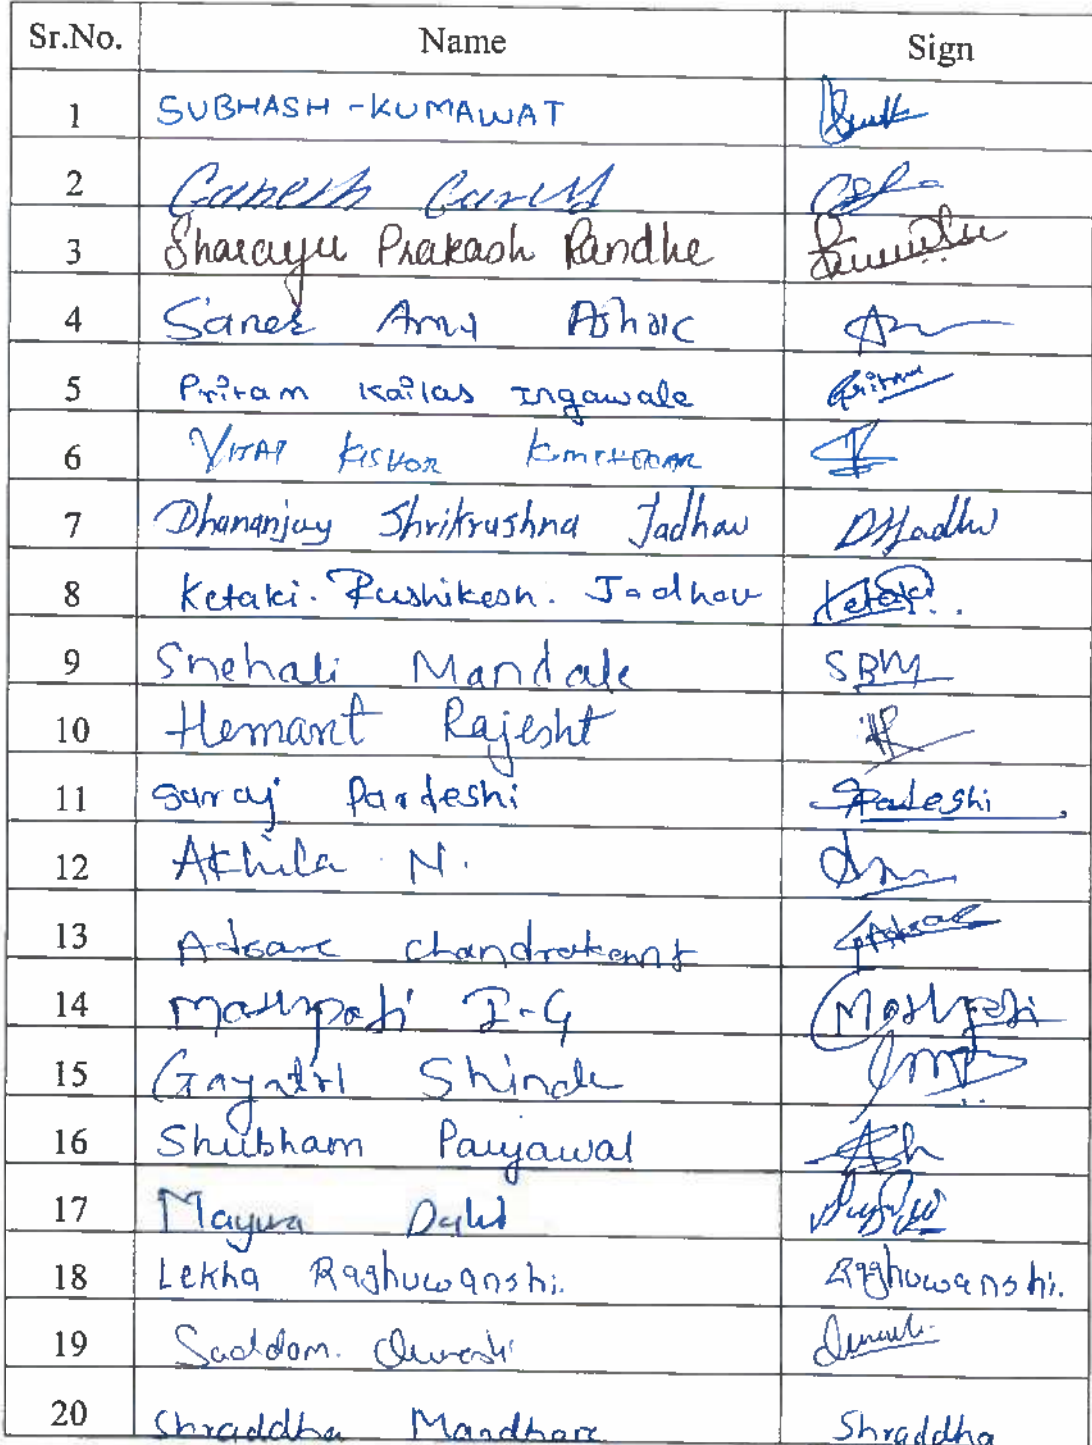 Sr.No. Name Sign
1 SUBHASH - KUMAWAT
2 Ganesh
3 Sharayu Prakash Randhe
4 Saner Amy Ashok
5 Pritam Kailas Ingawale Pritam
6 KISHOR
7 Dhananjay Shrikrushna Jadhav DSJadhav
8 Ketaki. Rushikesh. Jadhav Ketaki
9 Snehali Mandale SBM
10 Hemant Rajesht
11 Suraj Pardeshi SPardeshi
12 Akhila N.
13 Adsare Chandrakant
14 Mathpati I-G Mathpati
15 Gayatri Shinde
16 Shubham Payawal
17 Mayura
18 Lekha Raghuwanshi. Raghuwanshi.
19 Saddam. Qureshi
20 Shraddha Mandhare Shraddha